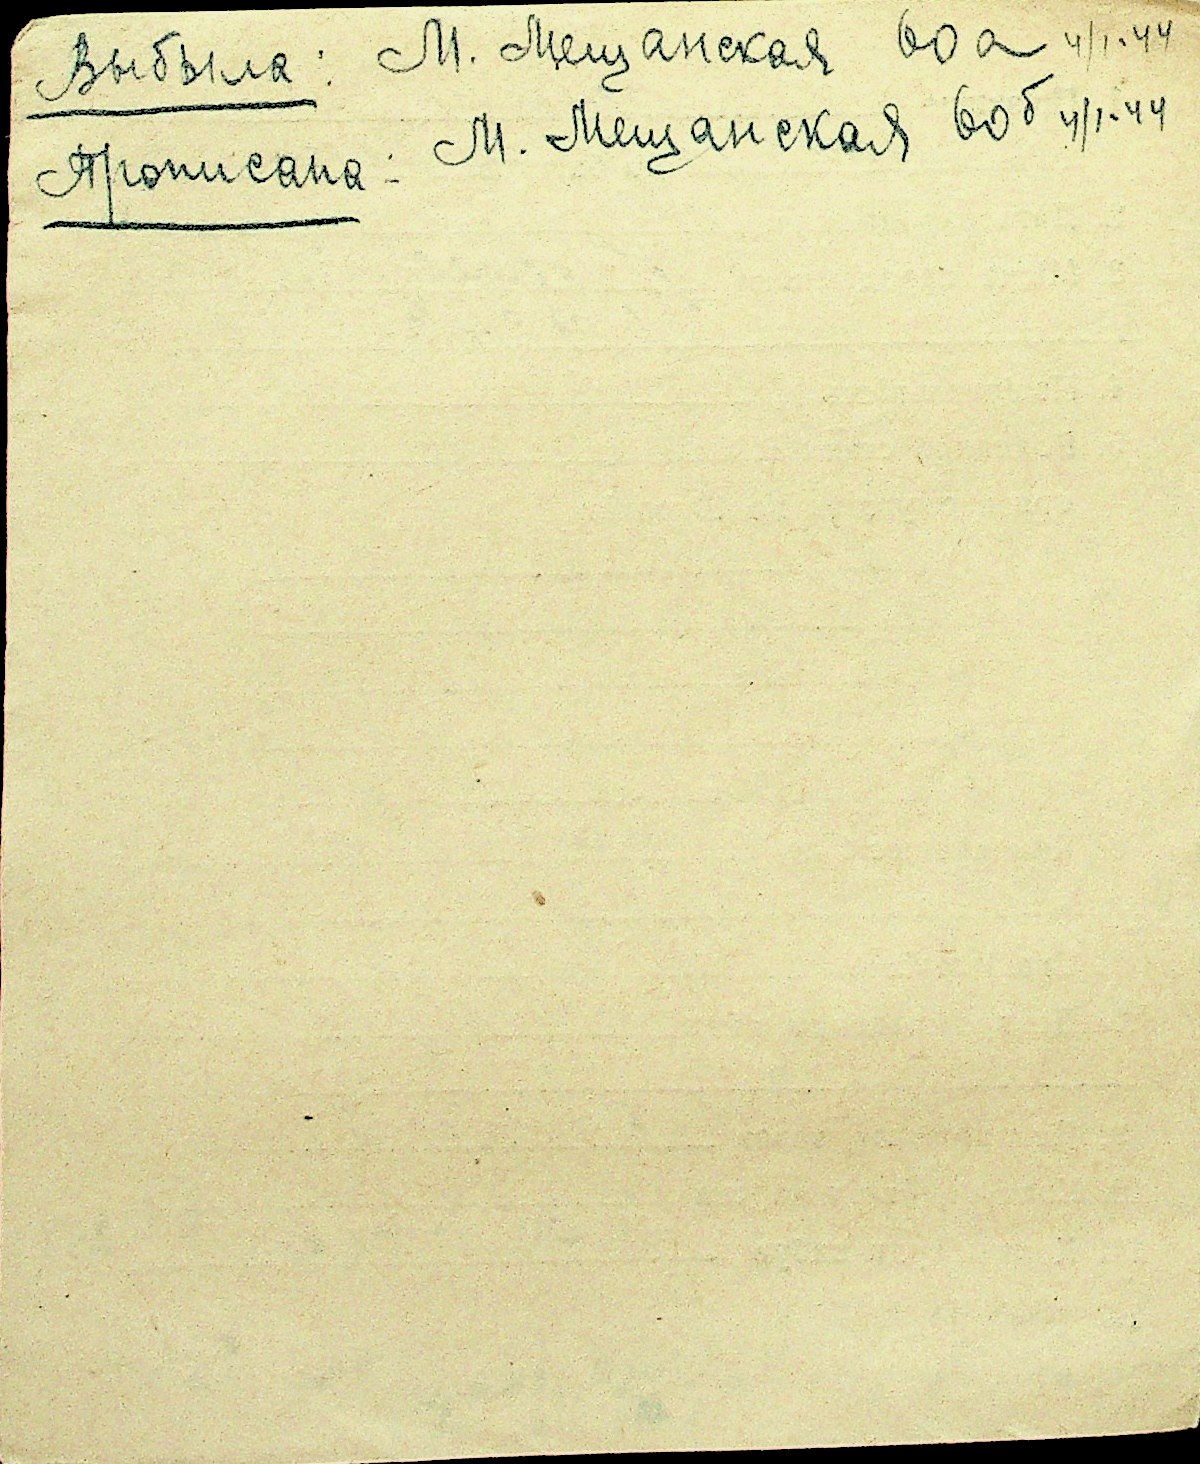 Выбыла: М. Мещанская 60 а 4/I-44
Прописана: М. Мещанская 60 б 4/I-44